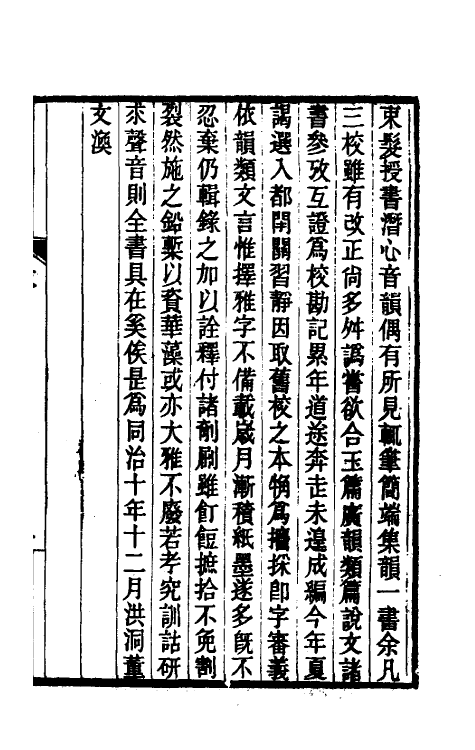 束髮授書潛心音韻偶有所見輒筆簡端集韻一書余凡
三校雖有改正尙多舛譌嘗欲合玉篇廣韻類篇說文諸
書參攷互證爲校勘記累年道途奔走未遑成編今年夏
謁選入都閉關習靜因取舊校之本稍爲攟採卽字審義
依韻類文言惟擇雅字不備載歲月漸積紙墨遂多旣不
忍棄仍輯錄之加以詮釋付諸剞劂雖飣餖摭拾不免割
裂然施之鉛槧以賁華藻或亦大雅不廢若考究訓詁研
求聲音則全書具在奚俟是爲同治十年十二月洪洞董
文渙